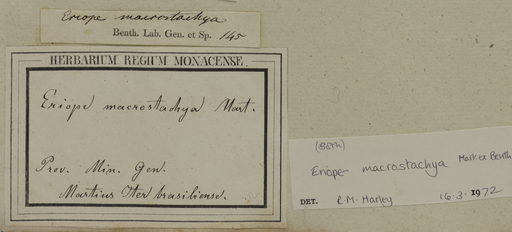 Eriope macrostachya
Benth. Lab. Gen. et Sp. 145
HERBARIUM REGIUM MONACENSE.
Eriope macrostachya Mart.
Prov. Min. Gen.
Martius Iter brasiliense.
(Beth)
Eriope macrostachya Mart. ex Benth
DET. R.M. Harley 16.3.1972